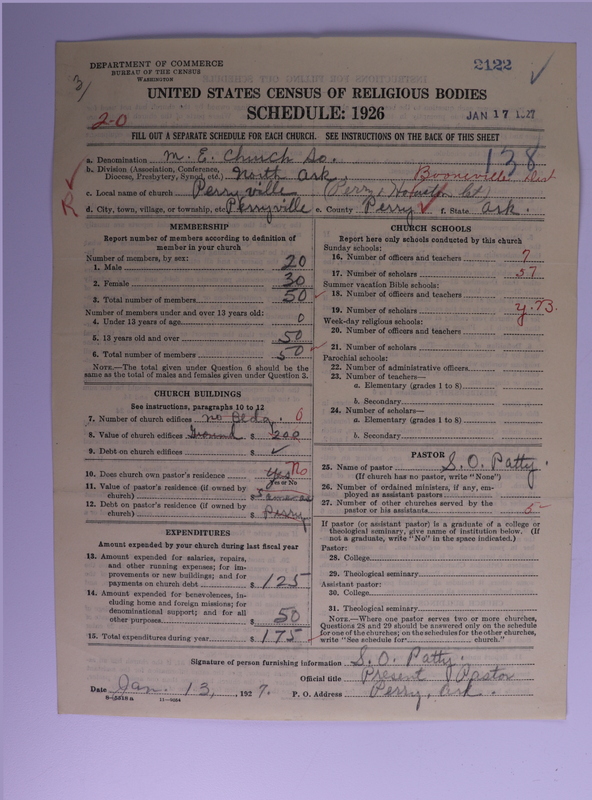 DEPARTMENT OF COMMERCE
BUREAU OF THE CENSUS
WASHINGTON
2122
3/
UNITED STATES CENSUS OF RELIGIOUS BODIES
SCHEDULE: 1926
JAN 17 1927
20
FILL OUT A SEPARATE SCHEDULE FOR EACH CHURCH. SEE INSTRUCTIONS ON THE BACK OF THIS SHEET
138
a. Denomination M. E. Church So.
b. Division (Association, Conference, Diocese, Presbytery, Synod, etc.) North Ark. Booneville Dist
c. Local name of church Perryville (Perry, Houston Ct)
R
d. City, town, village, or township, etc. Perryville e. County Perry f. State Ark.
MEMBERSHIP
Report number of members according to definition of
member in your church
Number of members, by sex:
1. Male 20
2. Female 30
3. Total number of members 50
Number of members under and over 13 years old:
4. Under 13 years of age 0
5. 13 years old and over 50
6. Total number of members 50
NOTE.—The total given under Question 6 should be the
same as the total of males and females given under Question 3.
CHURCH BUILDINGS
See instructions, paragraphs 10 to 12
7. Number of church edifices no Bldg. 0
8. Value of church edifices Ground $ 200
9. Debt on church edifices $ ✓
10. Does church own pastor's residence Yes No
Yes or No
11. Value of pastor's residence (if owned by
church) $ Same as
12. Debt on pastor's residence (if owned by
church) $ Perry
EXPENDITURES
Amount expended by your church during last fiscal year
13. Amount expended for salaries, repairs,
and other running expenses; for im-
provements or new buildings; and for
payments on church debt $ 125
14. Amount expended for benevolences, in-
cluding home and foreign missions; for
denominational support; and for all
other purposes $ 50
15. Total expenditures during year $ 175
CHURCH SCHOOLS
Report here only schools conducted by this church
Sunday schools:
16. Number of officers and teachers 7
17. Number of scholars 57
Summer vacation Bible schools:
18. Number of officers and teachers
19. Number of scholars y.73.
Week-day religious schools:
20. Number of officers and teachers
21. Number of scholars
Parochial schools:
22. Number of administrative officers
23. Number of teachers—
a. Elementary (grades 1 to 8)
b. Secondary
24. Number of scholars—
a. Elementary (grades 1 to 8)
b. Secondary
PASTOR
25. Name of pastor S. O. Patty.
(If church has no pastor, write "None")
26. Number of ordained ministers, if any, em-
ployed as assistant pastors
27. Number of other churches served by the
pastor or his assistants 5
If pastor (or assistant pastor) is a graduate of a college or
theological seminary, give name of institution below. (If
not a graduate, write "No" in the space indicated.)
Pastor:
28. College
29. Theological seminary
Assistant pastor:
30. College
31. Theological seminary
NOTE.—Where one pastor serves two or more churches,
Questions 28 and 29 should be answered only on the schedule
for one of the churches; on the schedules for the other churches,
write "See schedule for church."
Signature of person furnishing information S. O. Patty.
Official title Present Pastor
Date Jan. 13, , 1927. P. O. Address Perry, Ark.